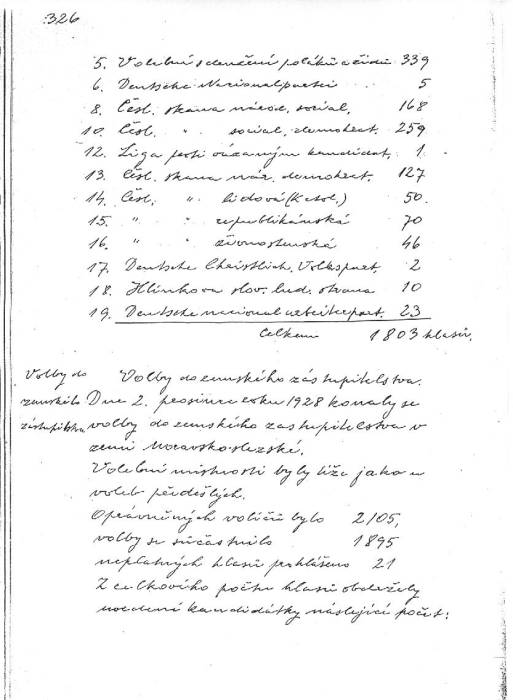 326
5. Volební sdružení poláků a židů 339
6. Deutsche Nacionalpartei 5
8. Čsl. strana národ. social. 168
10. Čsl. " social. demokrat. 259
12. Liga proti vázaným kandidát. 1.
13. Čsl. strana nár. demokrat. 127
14. Čsl. " lidová (Katol.) 50.
15. " " republikánská 70
16. " " živnostenská 46
17. Deutsche Christlich. Volkspart. 2
18. Hlinkova slov. lud. strana 10
19. Deutsche nacional arbeiterpart. 23
Celkem 1803 hlasů.
Volby do
zemského
zástupitelstva
Volby do zemského zástupitelstva.
Dne 2. prosince roku 1928 konaly se
volby do zemského zastupitelstva v
zemi Moravsko-slezské.
Volební místnosti byly tíže jako u
voleb předešlých.
Oprávněných voličů bylo 2105,
volby se súčastnilo 1895
neplatných hlasů prohlášeno 21
Z celkového počtu hlasů obdržely
uvedené kandidátky násle jící počet: